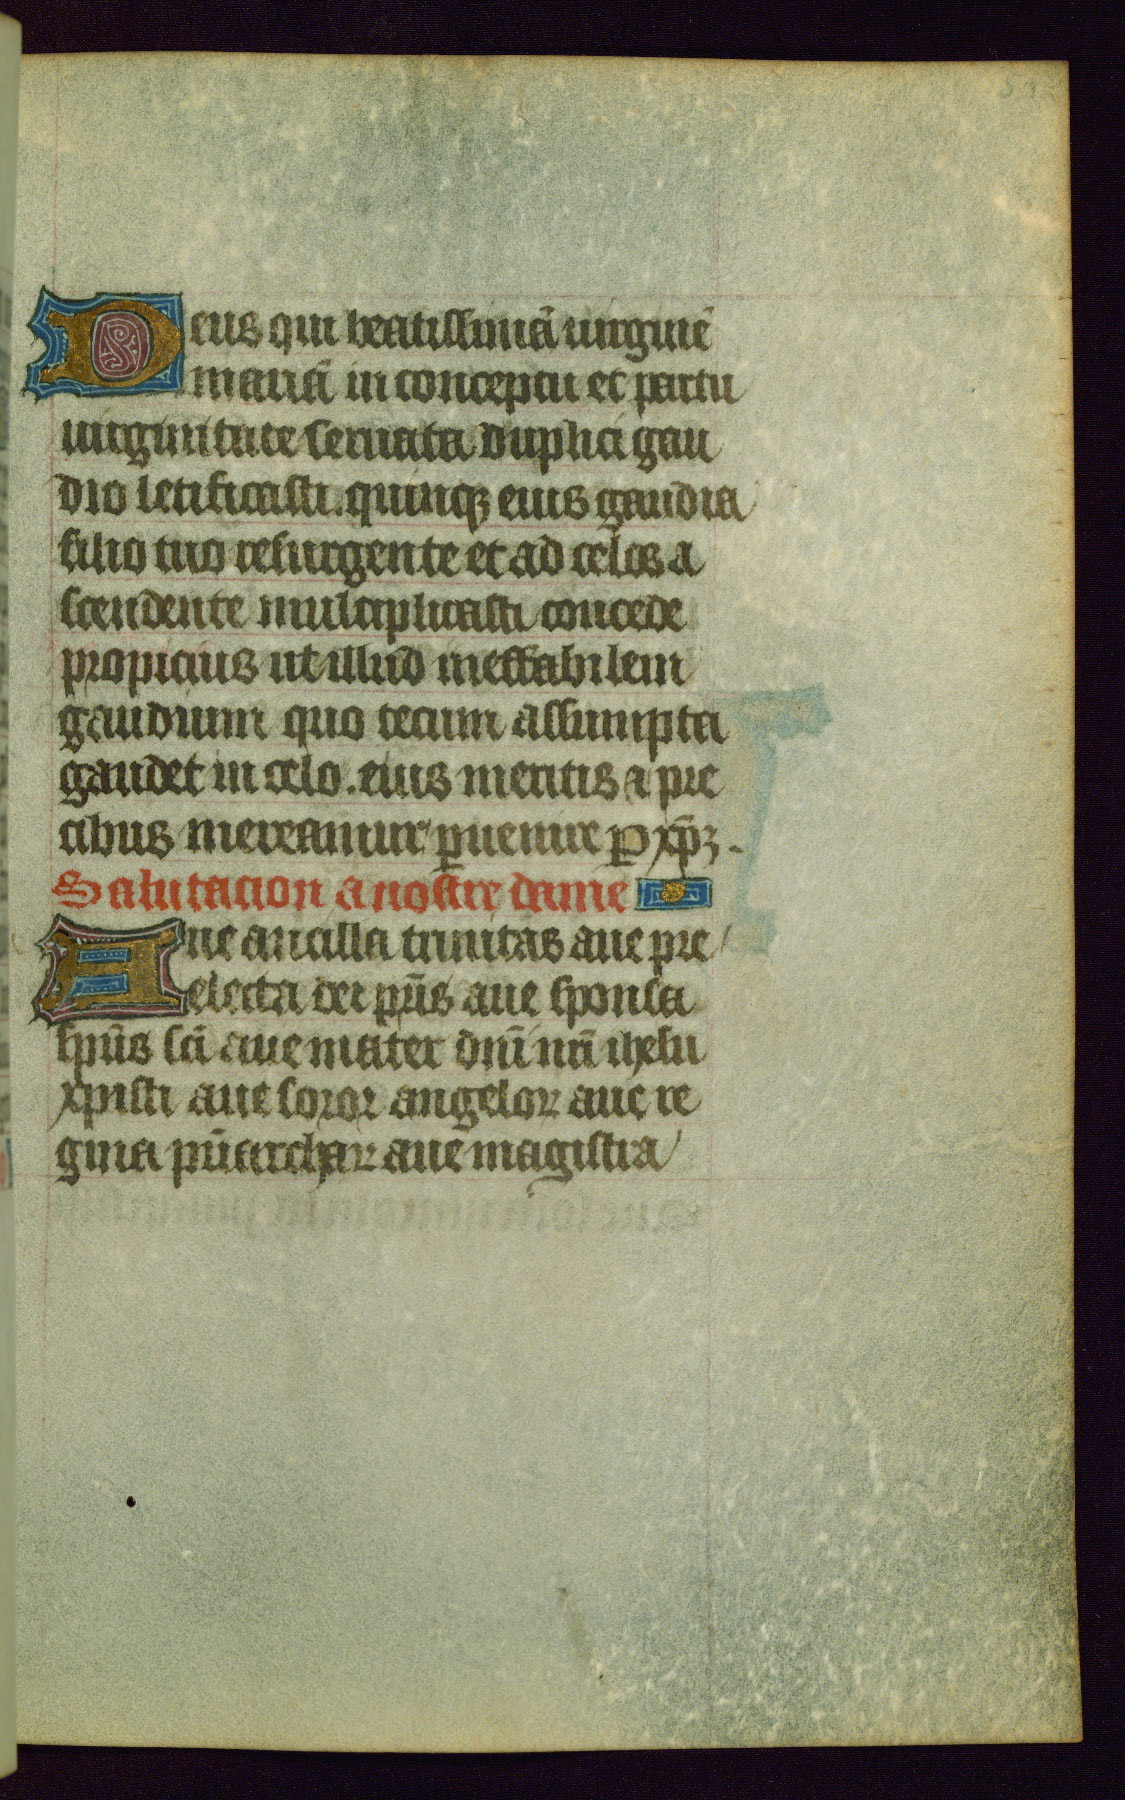 Deus qui beatissimā uirginē
mariā in conceptu et partu
uirginitate seruata duplici gau
dio letificasti. quinqꝫ eius gaudia
filio tuo resurgente et ad celos a
scendente multiplicasti concede
propicius ut illud ineffabilem
gaudium quo tecum assumpta
gaudet in celo. eius meritis ⁊ pre
cibus mereamur ꝑuenire ꝑ xp̄ꝫ.
Salutacion a nostre dame
Aue ancilla trinitas aue pre
electa dei pr̄is aue sponsa
sp̄us sc̄i aue mater dn̄i nr̄i ihesu
xpisti aue soror angeloꝝ aue re
gina pr̄iarchaꝝ aue magistra